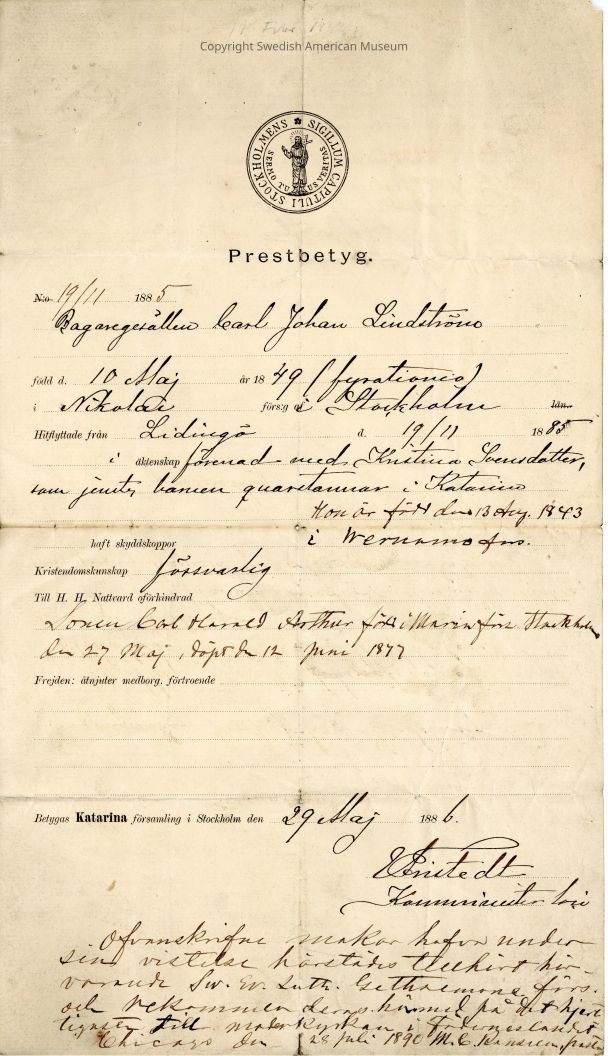 Copyright Swedish American Museum
SIGILLUM CAPITULI STOCKHOLMENS
SERMO TUUS VERITAS
Prestbetyg.
N:o 19/11 1885
Bagaregesällen Carl Johan Lindström
född d. 10 Maj år 1849 (fyrationio)
i Nikolai förs:g i Stockholm län.
Hitflyttade från Lidingö d. 19/11 1885
i äktenskap förenad med Kristina Svensdotter,
som jemte barnen qvarstannar i Katarina
Hon är född den 13 Aug. 1843
haft skyddskoppor i Wernamo förs.
Kristendomskunskap försvarlig
Till H. H. Nattvard oförhindrad
Sonen Carl Harald Arthur född i Maria förs Stockholm
den 27 Maj, döpt de 12 Juni 1877
Frejden: åtnjuter medborg. förtroende
Betygas Katarina församling i Stockholm den 29 Maj 1886.
Komminister
Ofvanskrifne makar hafva under
sin vistelse härstädes tillhört här-
varande Sw. Ev. Luth. Gethsemane förs.
och rekommen deras härmed på det hjert
ligaste till moderkyrkan i fäderneslandet
Chicago den 28 Juli 1890 M. C.